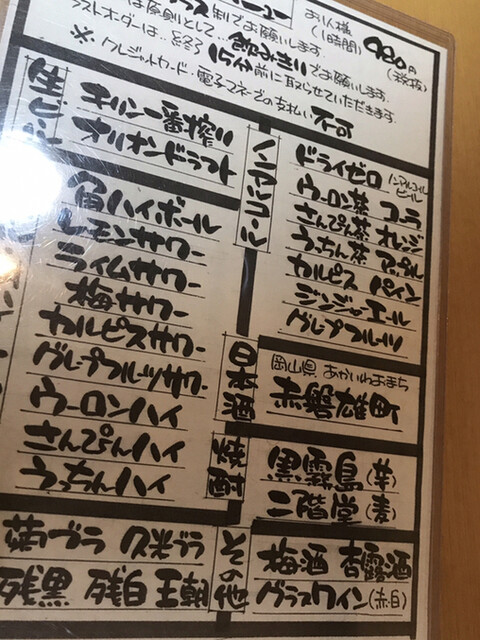 お1人様
(1時間) 980円
(税抜)
は原則として、飲みきりでお願いします。
ラストオーダーは、終了15分前に取らせていただきます。
※ クレジットカード・電子マネーの支払い不可
生ビール
キリン一番搾り
オリオンドラフト
角ハイボール
レモンサワー
ライムサワー
梅サワー
カルピスサワー
グレープフルーツサワー
ウーロンハイ
さんぴんハイ
うっちんハイ
菊ブラ 久米ブラ
残黒 残白 王朝
ノンアルコール
ドライゼロ ノンアルコールビール
ウーロン茶 コーラ
さんぴん茶 オレンジ
うっちん茶 アップル
カルピス パイン
ジンジャエール
グレープフルーツ
日本酒
岡山県 あかいわおまち
赤磐雄町
焼酎
黒霧島(芋)
二階堂(麦)
その他
梅酒 杏露酒
グラスワイン(赤・白)